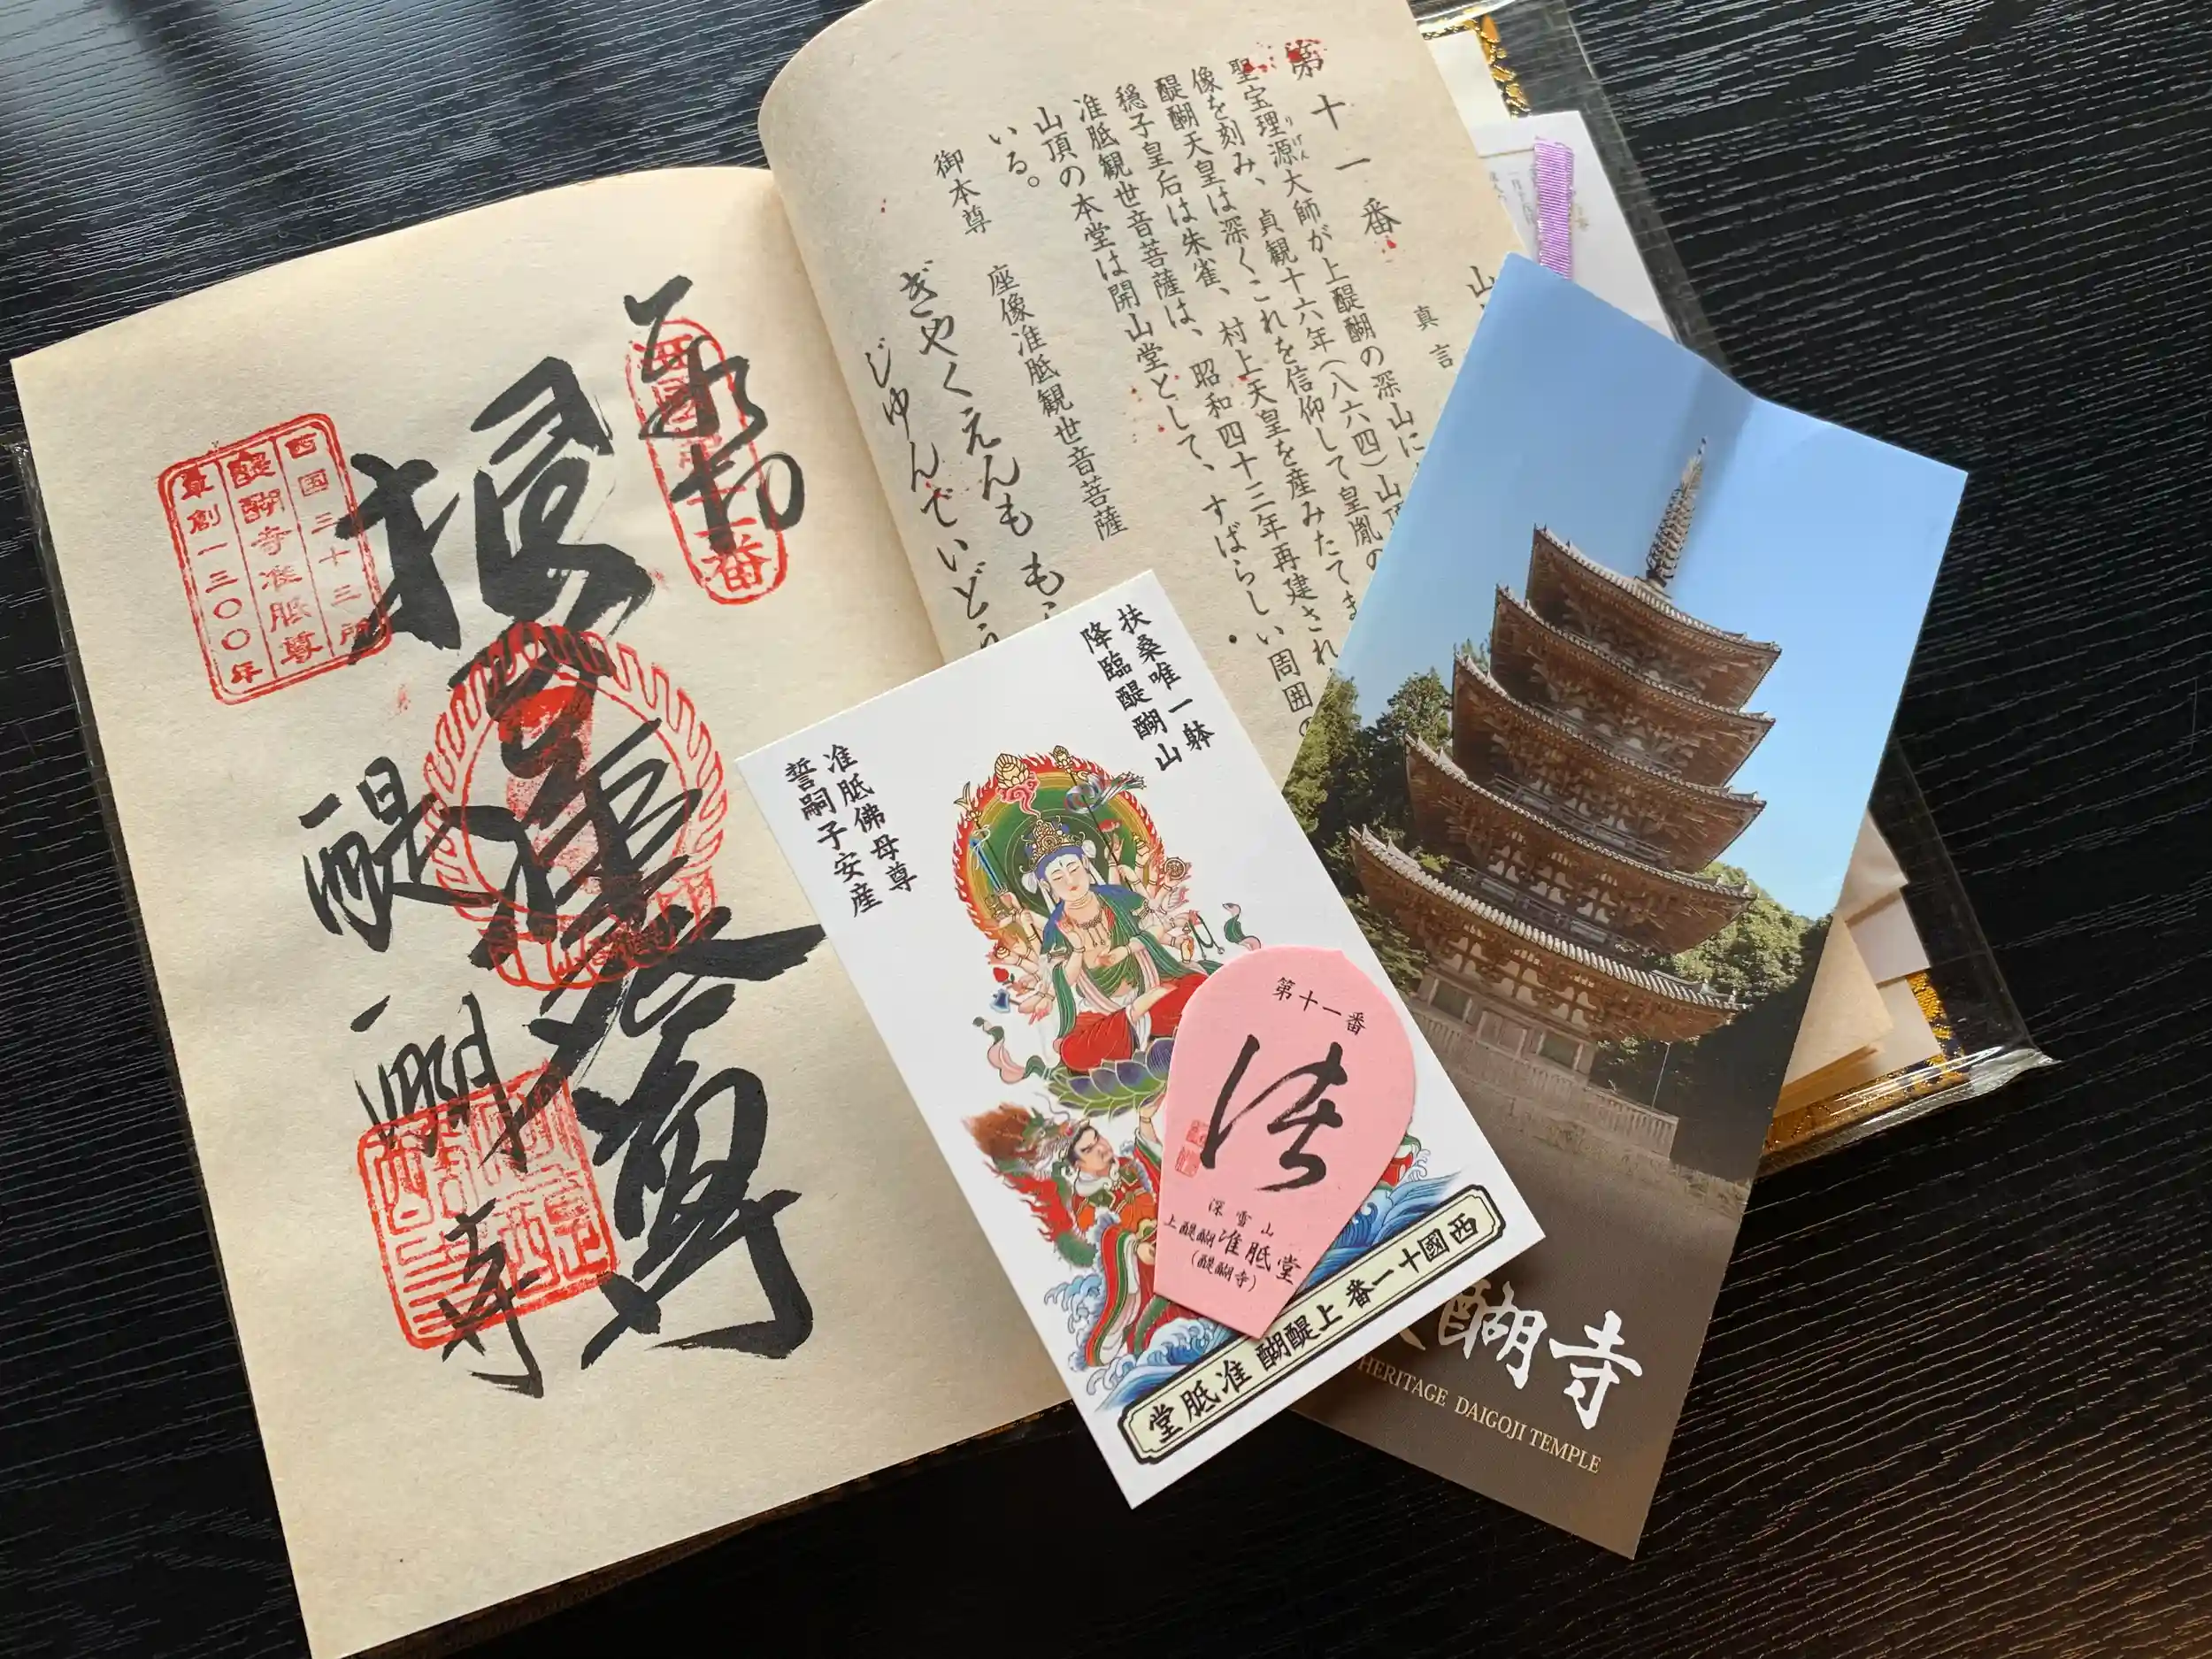 第十一番
山
真言
聖宝理源大師が上醍醐の深山に
りげん
像を刻み、貞観十六年(八六四)山頂
醍醐天皇は深くこれを信仰して皇胤の
穏子皇后は朱雀、村上天皇を産みたてま
准胝観世音菩薩は、昭和四十三年再建され
山頂の本堂は開山堂として、すばらしい周囲の
いる。
御本尊 座像准胝観世音菩薩
ぎやくえんも も
じゆんでいどう
西国十一番
奉拝
根本
准胝尊
醍醐寺
西国三十三所
醍醐寺准胝尊
草創一三〇〇年
扶桑唯一躰
降臨醍醐山
准胝佛母尊
誓嗣子安産
西國十一番 上醍醐 准胝堂
第十一番
深雪山
上醍醐准胝堂
(醍醐寺)
醐寺
HERITAGE DAIGOJI TEMPLE